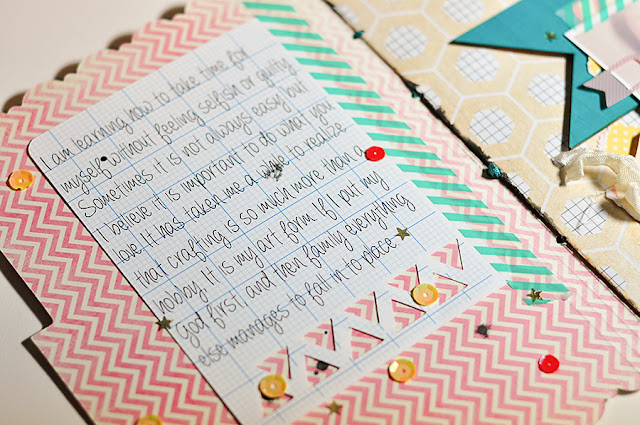 I am learning how to take time for
myself without feeling selfish or guilty.
Sometimes it is not always easy but
I believe it is important to do what you
love. It has taken me a while to realize
that crafting is so much more than a
hobby, it is my art form. If I put my
God first, and then family everything
else manages to fall in to place